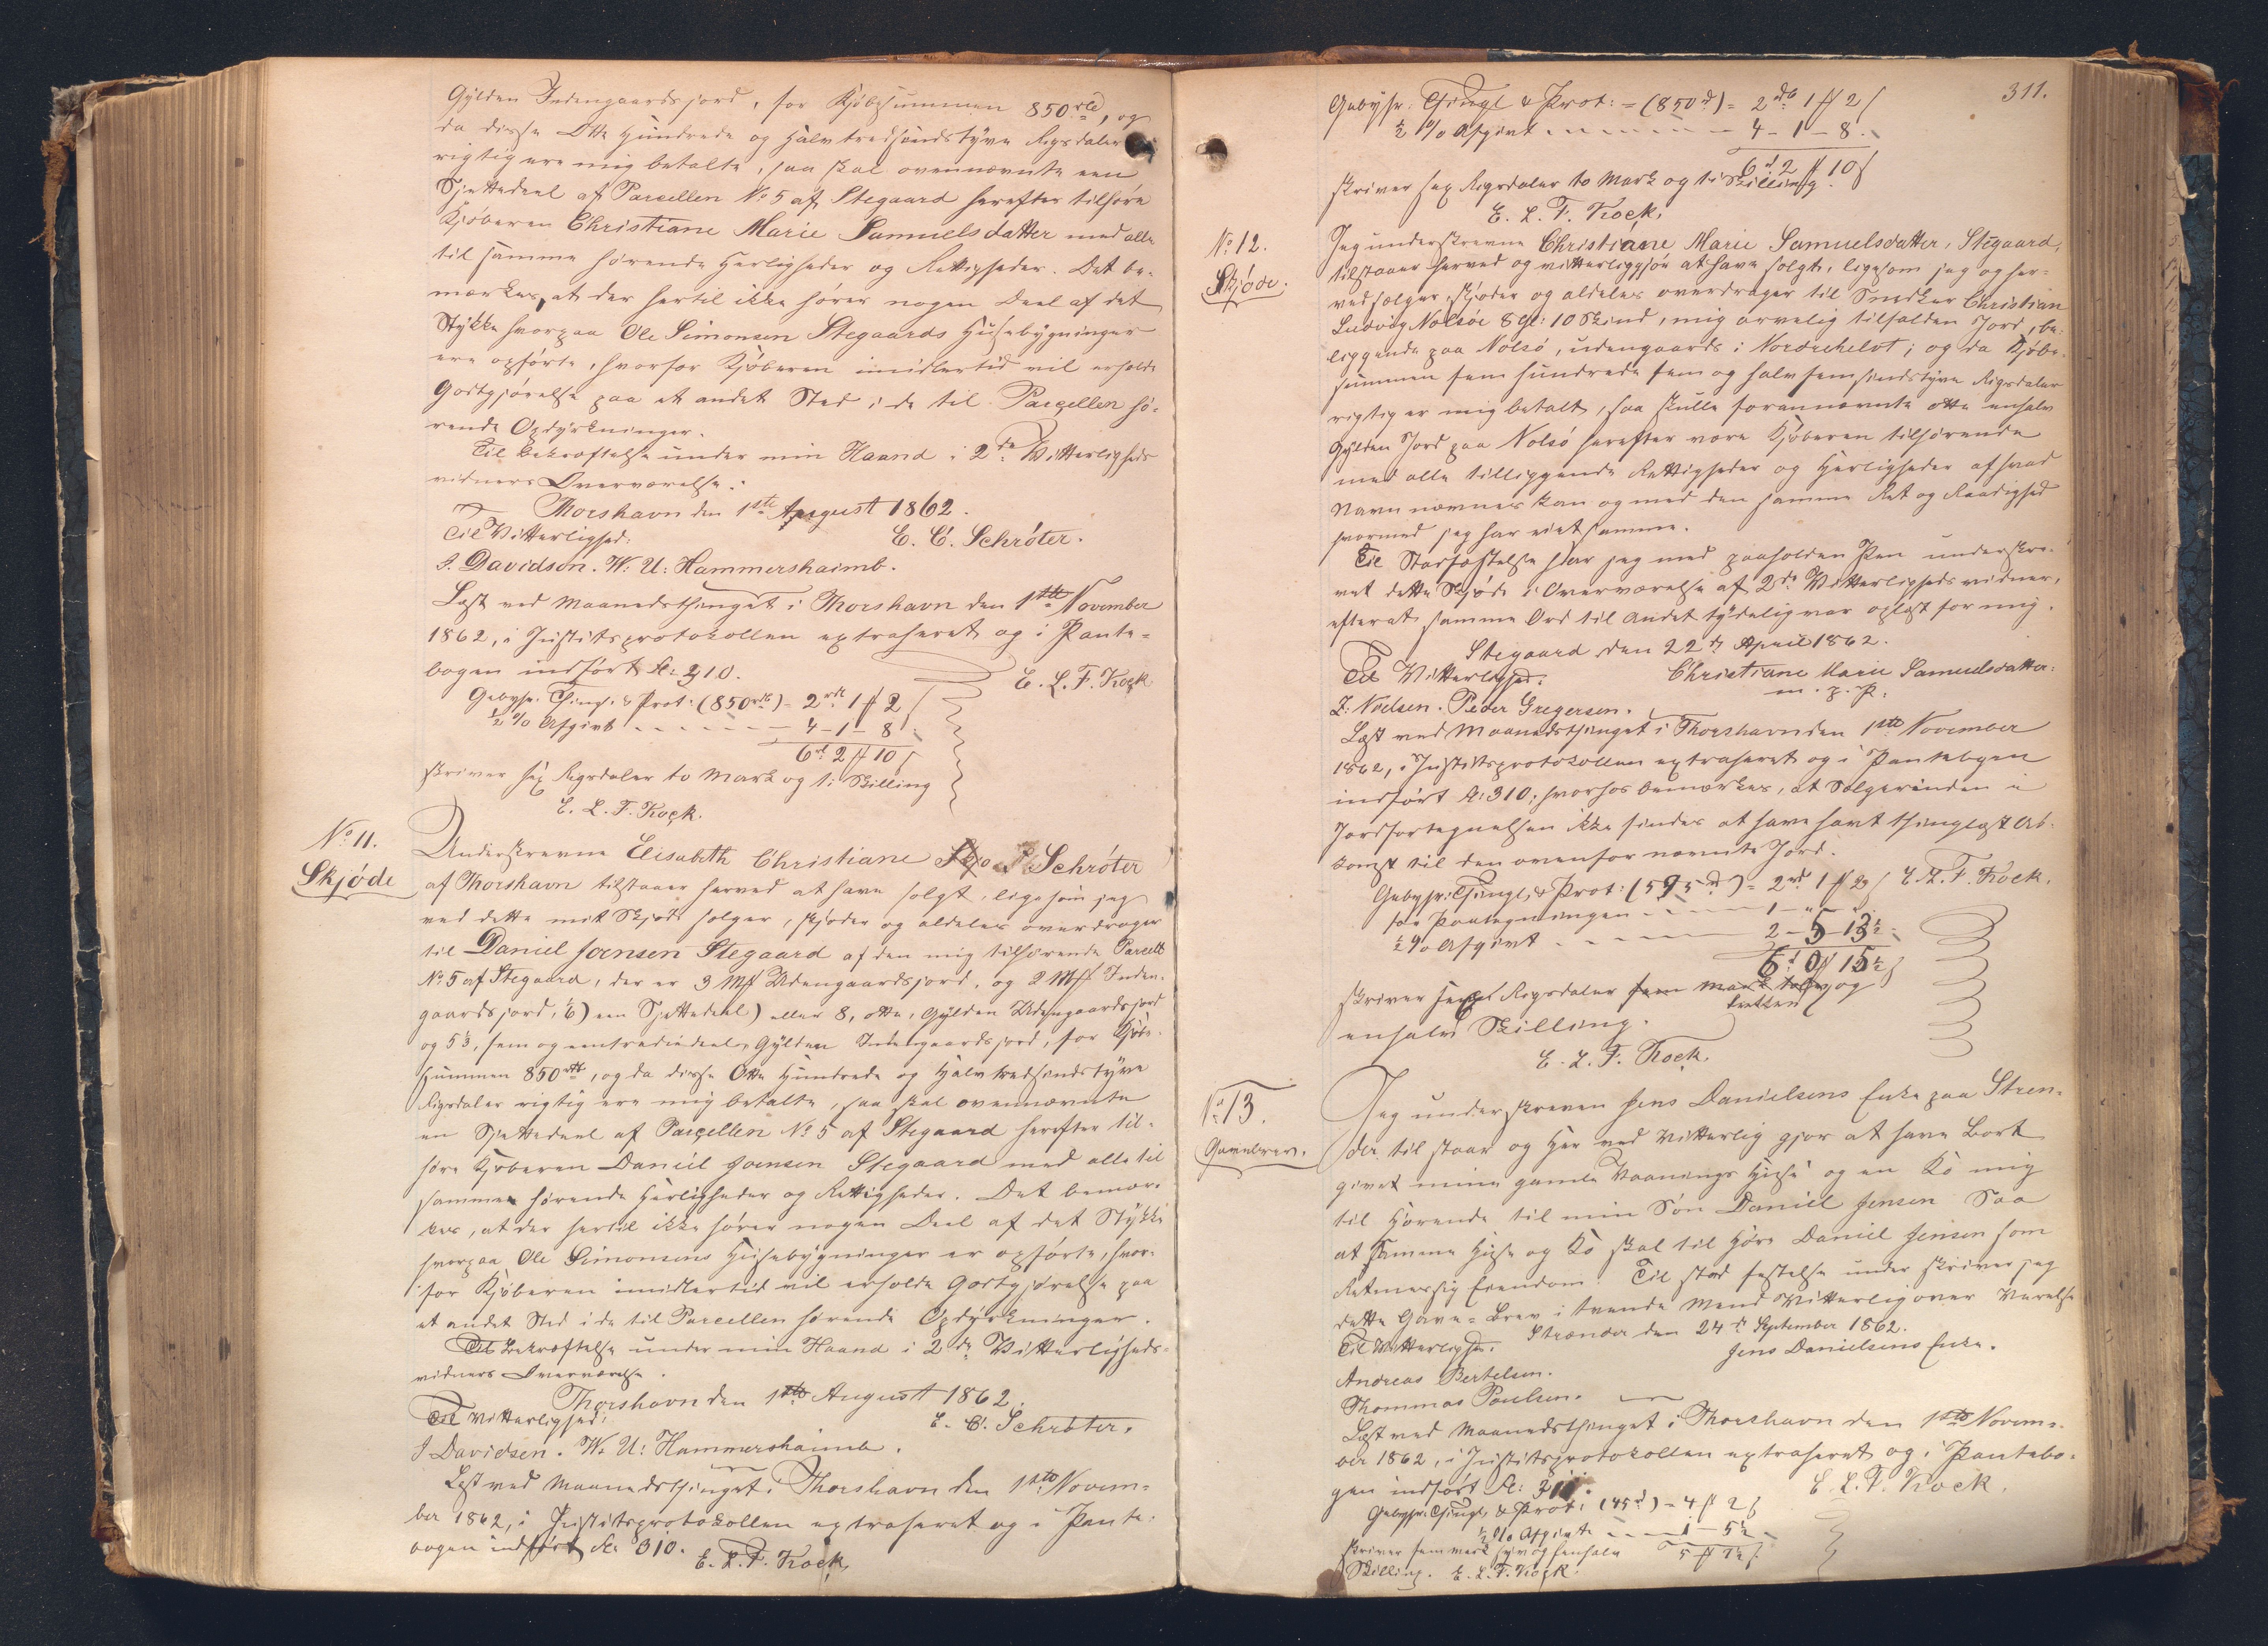 Gylden Indengaardsjord, for Kjøbesummen 850 rd, og
da disse Otte Hundrede og Halvtredsindstyve Rigsdaler
rigtig ere mig betalte, saa skal ovennævnte een
Sjettedeel af Parcellen No 5 af Stegaard herefter tilhøre
Kjøberen Christiane Marie Samuelsdatter med alle
til samme hørende Herligheder og Rettigheder. Det be-
mærkes, at der hertil ikke hører nogen Deel af det
Stykke hvorpaa Ole Simonsen Stegaards Huusebygninger
ere opførte, hvorfor Kjøberen imidlertid vil erholde
Godtgjørelse paa et andet Sted i de til Parcellen hø-
rende Opdyrkninger.
Til Bekræftelse under min Haand i 2de Vitterligheds-
vidners Overværelse.
Thorshavn den 1ste August 1862.
Til Vitterlighed:
E. C. Schrøter.
J. Davidsen. W. U. Hammershaimb.
Læst ved Maanedsthinget i Thorshavn den 1ste November
1862, i Justitsprotokollen extraheret og i Pante-
bogen indført Fol: 310.
E. L. F. Kock
Gebyhr. Thingl. & Prot: (850 rd) = 2 rd 1 ℳ 2 ß
½ % Afgivt - - - - - 4 - 1 - 8
6 rd 2 ℳ 10 ß
skriver sex Rigsdaler to Mark og ti Skilling
E. L. F. Kock.
No 11.
Skjøde
Underskrevne Elisabeth Christiane Schrøter
af Thorshavn tilstaaer herved at have solgt, ligesom jeg
ved dette mit Skjøde sælger, skjøder og aldeles overdrager
til Daniel Joensen Stegaard af den mig tilhørende Parcell
No 5 af Stegaard, der er 3 Mk Udengaardsjord, og 2 Mk Inden-
gaardsjord, 1/6) een Sjettedeel) eller 8, otte, Gylden Udengaardsjord
og 5 1/3, fem og eentrediedeel, Gylden Indengaardsjord, for Kjøbe-
summen 850 rd, og da disse Otte Hundrede og Halvtredsindstyve
Rigsdaler rigtig ere mig betalte, saa skal ovennævnte
en Sjettedeel af Parcellen No 5 af Stegaard herefter til-
høre Kjøberen Daniel Joensen Stegaard med alle til
sammen hørende Herligheder og Rettigheder. Det bemær-
kes, at der hertil ikke hører nogen Deel af det Stykke
hvorpaa Ole Simonsens Huusebygninger er opførte, hvor-
for Kjøberen imidlertid vil erholde Godtgjørelse paa
et andet Sted i de til Parcellen hørende Opdyrkninger.
Til Bekræftelse under min Haand i 2de Vitterligheds-
vidners Overværelse.
Thorshavn den 1ste August 1862.
Til Vitterlighed:
E. C. Schrøter.
J Davidsen. W. U. Hammershaimb.
Læst ved Maanedsthinget i Thorshavn den 1ste Novem-
ber 1862, i Justitsprotokollen extraheret og i Pante-
bogen indført Fol: 310.
E. L. F. Kock
311.
Gebyhr. Thingl & Prot: - (850 rd) = 2 rd 1 ℳ 2 ß
½ % Afgivt - - - - - 4 - 1 - 8
6 rd 2 ℳ 10 ß
skriver sex Rigsdaler to Mark og ti Skilling.
E. L. F. Kock.
No 12.
Skjøde.
Jeg underskrevne Christiane Marie Samuelsdatter, Stegaard,
tilstaaer herved og vitterliggjør at have solgt, ligesom jeg og her-
ved sælger, skjøder og aldeles overdrager til Snedker Christian
Ludvig Nolsøe 8 Gl: 10 Skind, mig arvelig tilfalden Jord, be-
liggende paa Nolsø, udengaards i Nordrehelvt; og da Kjøbe-
summen fem hundrede fem og halvfemsindstyve Rigsdaler
rigtig er mig betalt, saa skulle forannævnte otte enhalv
Gylden Jord paa Nolsø herefter være Kjøberen tilhørende
med alle tilliggende Rettigheder og Herligheder af hvad
Navn nævnes kan og med den samme Ret og Raadighed
hvormed jeg har eiet samme.
Til Stadfæstelse har jeg med paaholden Pen underskre-
vet dette Skjøde i Overværelse af 2de Vitterlighedsvidner,
efterat samme Ord til andet tydelig var oplæst for mig.
Stegaard den 22de April 1862.
Til Vitterlighed.
Christiane Marie Samuelsdatter.
m. p. P.
Z: Nielsen. Peder Gregersen.
Læst ved Maanedsthinget i Thorshavn den 1ste November
1862, i Justitsprotokollen extraheret og i Pantebogen
indført Fol: 310; hvorhos bemærkes, at Sælgerinden i
Jordfortegnelsen ikke findes at have havt thinglæst Ad-
komst til den ovenfor nævnte Jord.
E. L. F. Kock.
Gebyhr. Thingl. & Prot: (595 rd) = 2 rd 1 ℳ 2 ß
for Paategningen - - - 1 - " - "
½ % Afgivt - - - - - 2 - 5 - 13½
6 rd 0 ℳ 15½ ß
skriver sex Rigsdaler fem Mark og
enhalv Skilling.
E. L. F. Kock.
No 13.
Gavebrev.
Jeg underskreven Jens Danielsens Enke paa Stren-
der til staar og Her ved Vitterlig gjør at have Bort
givet mine gamle Vaanings Huse og en Ko mig
til Hørende til min Søn Daniel Jensen Saa
at samme Huse og Ko skal til Høre Daniel Jensen som
Retmessig Eiendom. Til stad festelse under skriver jeg
dette Gave-Brev i tvende Mend Vitterlig over Verelse
Strænder den 24de September 1862.
Til Vitterlighed.
Jens Danielsens Enke.
Andreas Bertelsen.
Thommas Poulsen.
Læst ved Maanedsthinget i Thorshavn den 1ste Novem-
ber 1862, i Justitsprotokollen extraheret og i Pantebo-
gen indført Fol: 311.
E. L. F. Kock.
Gebyhr. Thingl. & Prot: (45 rd) - 4 ℳ 2 ß
½ % Afgivt - - - 1 - 5½
5 ℳ 7½ ß
skriver fem Mark syv og enhalv
Skilling. E. L. F. Kock.